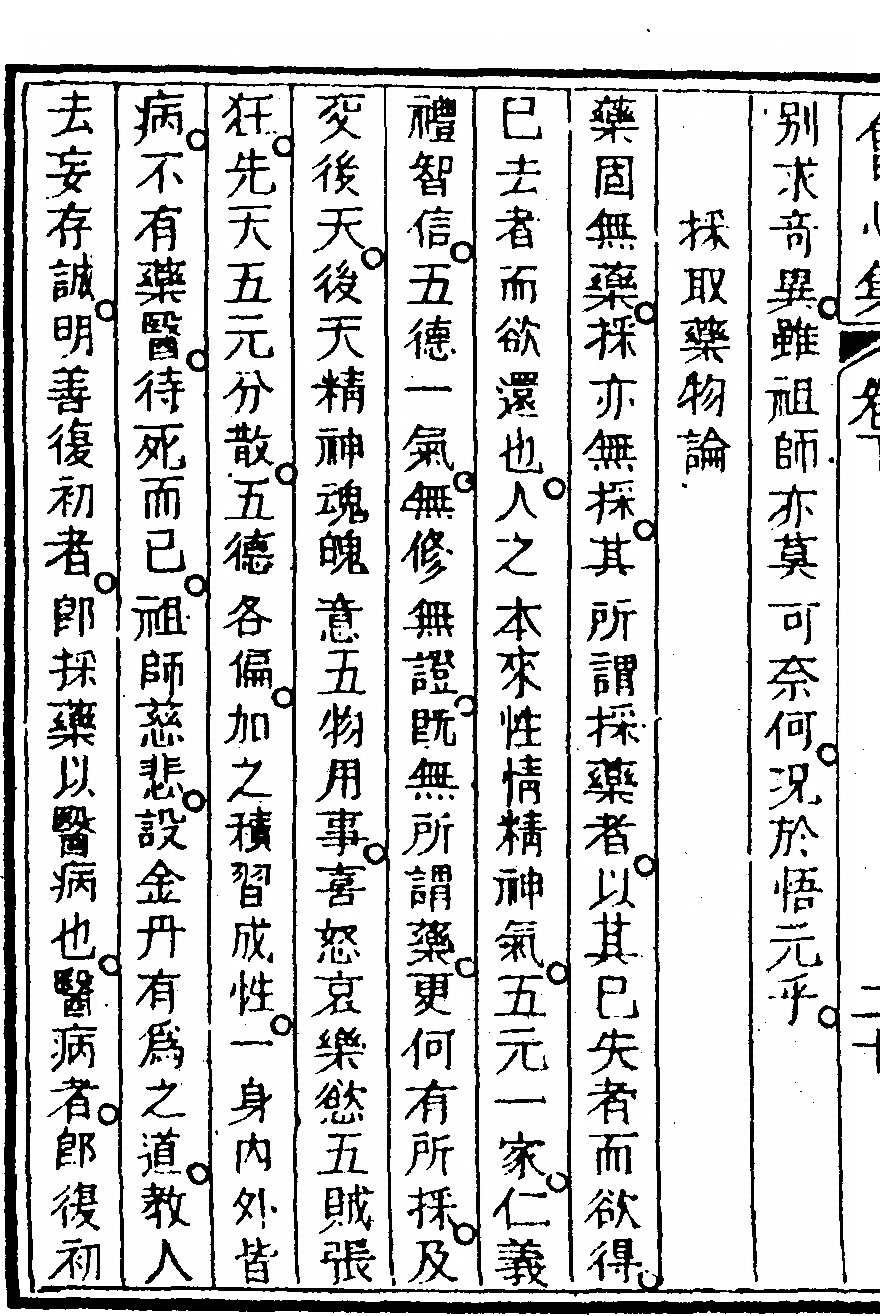 會心集 卷下 二十
別求奇異。雖祖師亦莫可奈何。況於悟元乎。
採取藥物論
藥固無藥。採亦無採。其所謂採藥者。以其已失者而欲得。
已去者而欲還也。人之本來性情精神氣。五元一家。仁義
禮智信。五德一氣。無修無證。旣無所謂藥。更何有所採。及
交後天。後天精神魂魄意五物用事。喜怒哀樂慾五賊張
狂。先天五元分散。五德各偏。加之積習成性。一身內外皆
病。不有藥醫。待死而已。祖師慈悲。設金丹有爲之道。教人
去妄存誠。明善復初者。卽採藥以醫病也。醫病者。卽復初